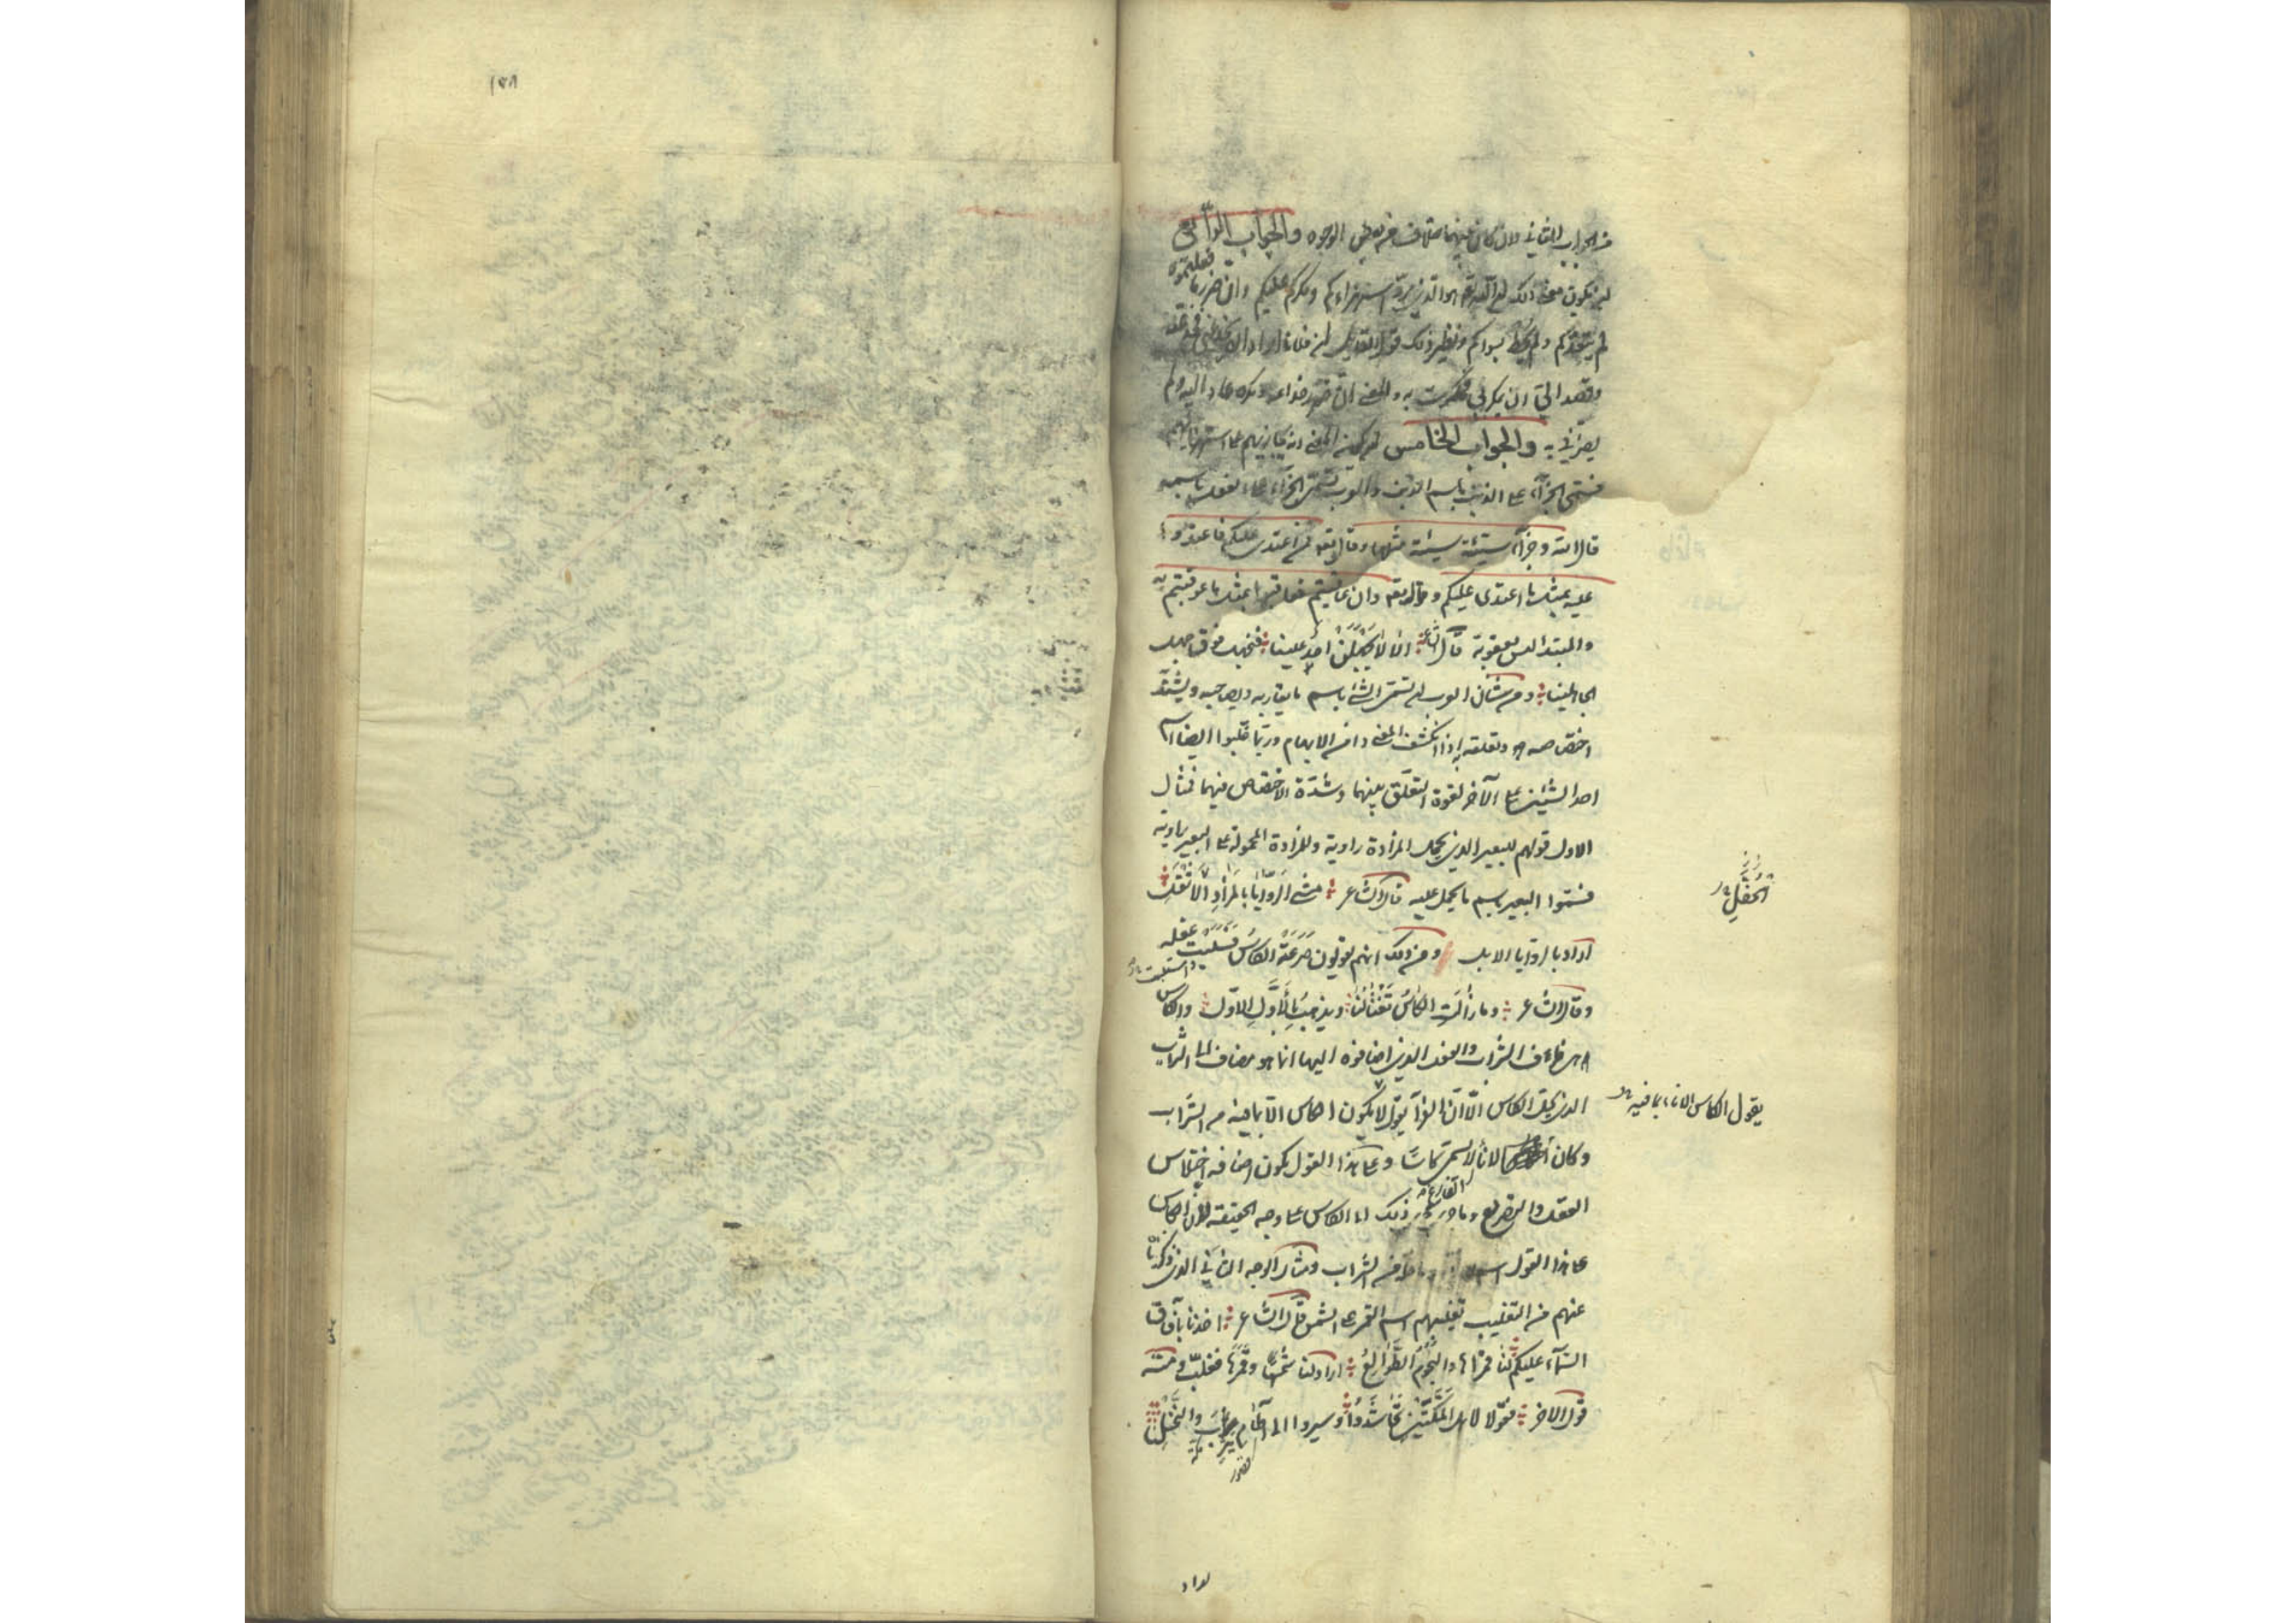 من الجواب الثاني وان كان بينهما خلاف من بعض الوجوه والجواب الرابع
ان يكون معنى ذلك ان الله تعالى هو الذي يرد استهزاءكم ومكركم عليكم وان ضرر ما فعلتموه
لم يتعدكم ولم يحط بسواكم ونظير ذلك قول القائل ان فلانا اراد ان يخدعني فخدعته
وقصد الي ان يمكر بي فمكرت به والمعنى ان ضرر خداعه ومكره عاد اليه ولم
يضرني به والجواب الخامس ان يكون المعنى انه يجازيهم على استهزائهم
فسمى الجزاء على الذنب باسم الذنب والعرب تسمى الجزاء على الفعل باسمه
قال الله وجزاء سيئة سيئة مثلها وقال تعالى فمن اعتدى عليكم فاعتدوا
عليه بمثل ما اعتدى عليكم وقال تعالى وان عاقبتم فعاقبوا بمثل ما عوقبتم به
والمبتدا ليس بعقوبة قال الشاعر الا لا يجهلن احد علينا فنجهل فوق جهل
الجاهلينا ومن شان العرب ان تسمى الشئ باسم ما يقاربه ويصاحبه ويشتد
اختصاصه وتعلقه به اذا انكشف المعنى وامن الابهام وربما غلبوا ايضا اسم
احد الشيئين على الآخر لقوة التعلق بينهما وشدة الاختصاص فيهما فمثال
الاول قولهم للبعير الذي يحمل المزادة راوية وللمزادة المحمولة على البعير راوية
فسموا البعير باسم ما يحمل عليه قال الشاعر مشي الروايا بالمزاد الاثقل
اراد بالروايا الابل ومن ذلك انهم يقولون صرعته الكاس فسلبت عقله
واستلبت
وقال الشاعر وما زالت الكاس تغتالنا ويذهب بالاول الاول والكاس
هي ظرف الشراب والفعل الذي اضافوه اليها انما هو مضاف الى الشراب
الذي يحل الكاس الا ان الفراء يقول لا يكون الكاس الا بما فيه من الشراب
وكان لاناء لا يسمى كاسا وعلى هذا القول يكون اضافة اختلاس
الفارغ
العقل والتصريع وما جرى مجرى ذلك الى الكاس على وجه الحقيقة لان الكاس
على هذا القول اسم من الشراب ومثال الوجه الثاني الذي ذكرناه
عنهم من التغليب تغليبهم اسم القمر على الشمس قال الشاعر اخذنا بآفاق
السماء عليكم لنا قمراها والنجوم الطوالع اراد لنا شمسها وقمرها فغلب ومنه
قول الآخر فقولا لاهل المكتين تحاشدوا وسيروا الى آطام يثرب والنخل
المخفل
يقول الكاس الاناء بما فيه
اراد
١٧٨